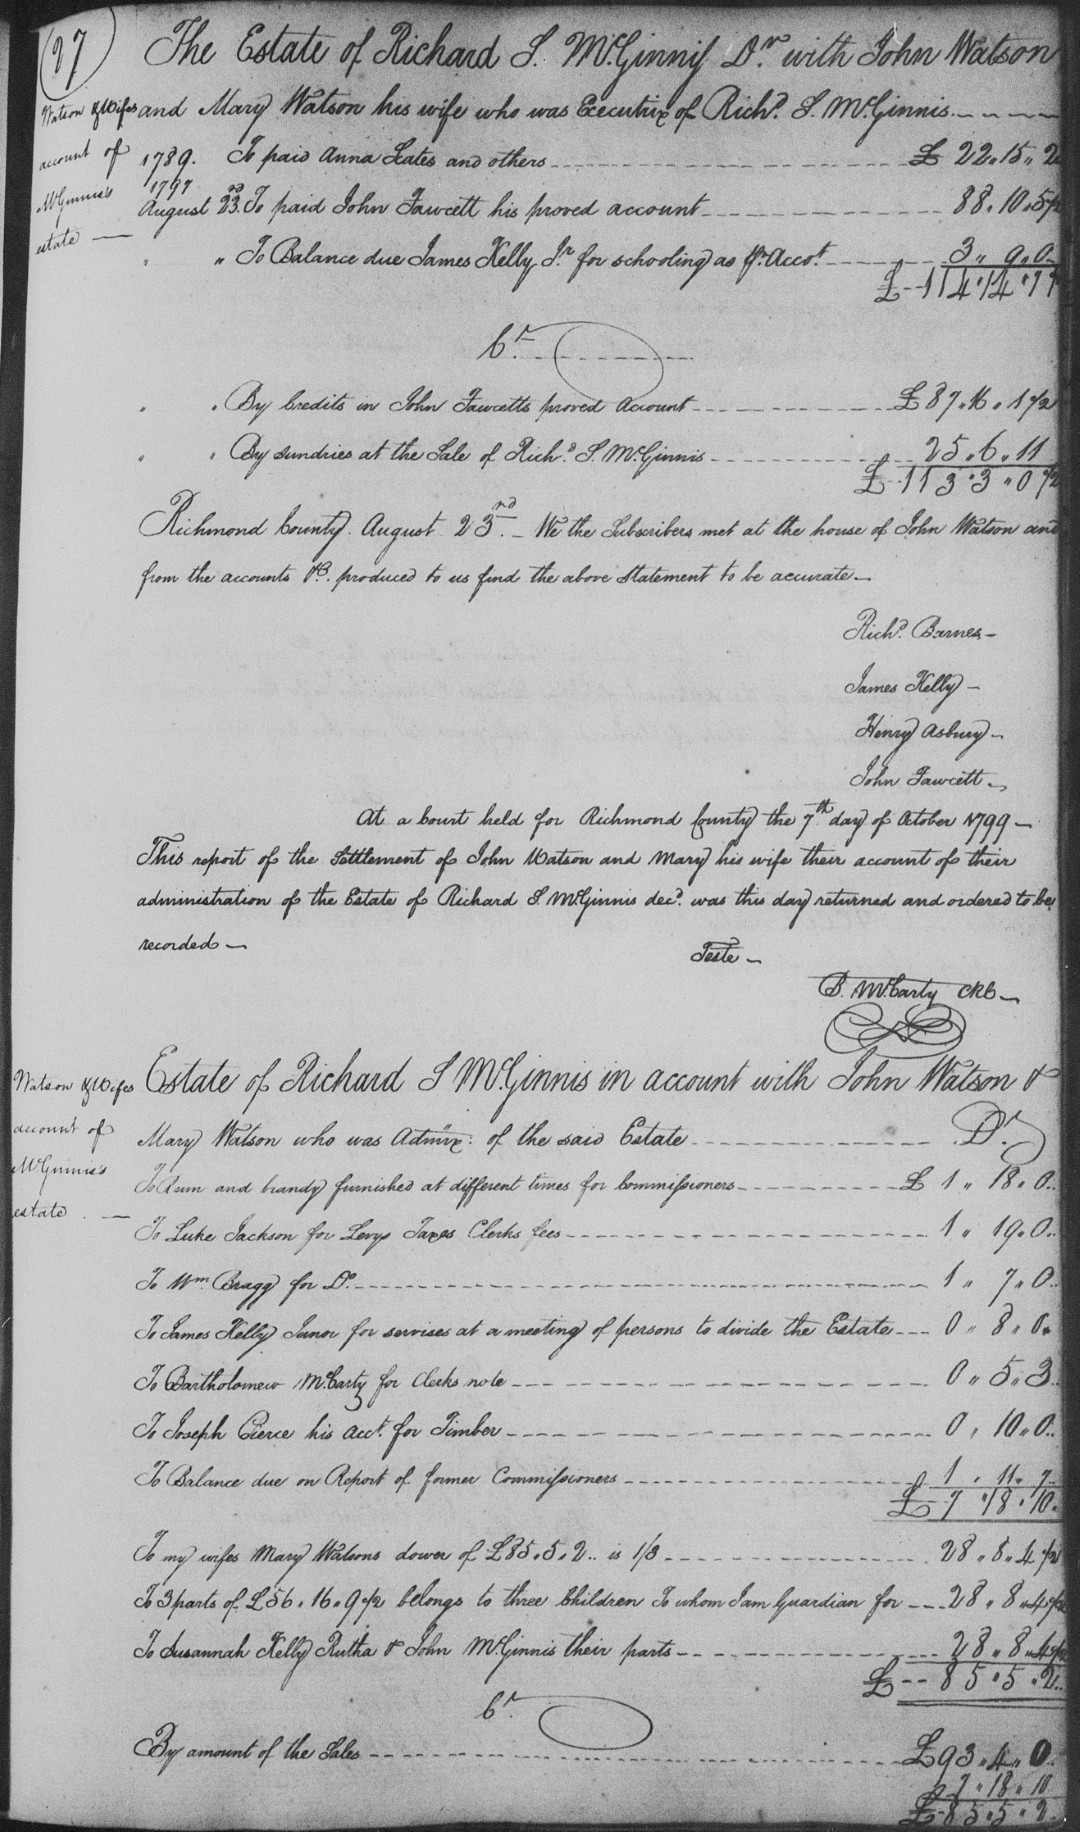 27
The Estate of Richard S. McGinnis Dr. with John Watson
and Mary Watson his wife who was Executrix of Richd. S. McGinnis
Watson & Wifes
account of
McGinnis's
estate
1789. To paid Anna Scates and others £ 22.15.2
1797
August 23rd. To paid John Fawcett his proved account 88.10.5 1/2
" To Balance due James Kelly Jr. for schooling as pr. Accot. 3.9.0
£ 114.14.7
Cr.
By Credits in John Fawcetts proved Account £ 87.16.1 1/2
By sundries at the Sale of Richd. S. McGinnis 25.6.11
£ 113.3.0 1/2
Richmond County August 23rd. We the Subscribers met at the house of John Watson and
from the accounts &c. produced to us find the above Statement to be accurate
Richd. Barnes
James Kelly
Henry Asbury
John Fawcett
At a Court held for Richmond County the 7th day of October 1799
This report of the Settlement of John Watson and Mary his wife their account of their
administration of the Estate of Richard S. McGinnis decd. was this day returned and ordered to be
recorded
Teste
B. McCarty CRC
Estate of Richard S McGinnis in account with John Watson &
Mary Watson who was Admix: of the said Estate Dr.
Watson & Wifes
account of
McGinnis's
estate
To Rum and brandy furnished at different times for Commissioners £ 1 " 18.0
To Luke Jackson for Levys Taxes Clerks fees 1 " 19.0
To Wm. Bragg for Do. 1 " 7.0
To James Kelly Junor for servises at a meeting of persons to divide the Estate 0 " 8.0
To Bartholomew McCarty for Clerks note 0 " 5.3
To Joseph Pierce his acct. for Timber 0 " 10.0
To Balance due on Report of former Commissioners 1 . 11.7
£ 7 . 18 . 10
To my wifes Mary Watsons dower of £85.5.2 is 1/3 28.8.4 1/2
To 3 parts of £56.16.9 1/2 belongs to three Children To whom I am Guardian for 28.8.4 1/2
To Susannah Kelly Rutha & John McGinnis their parts 28.8.4 1/2
£ 85.5.2
Cr.
By amount of the Sales £93.4.0
7.18.10
£ 85.5.2